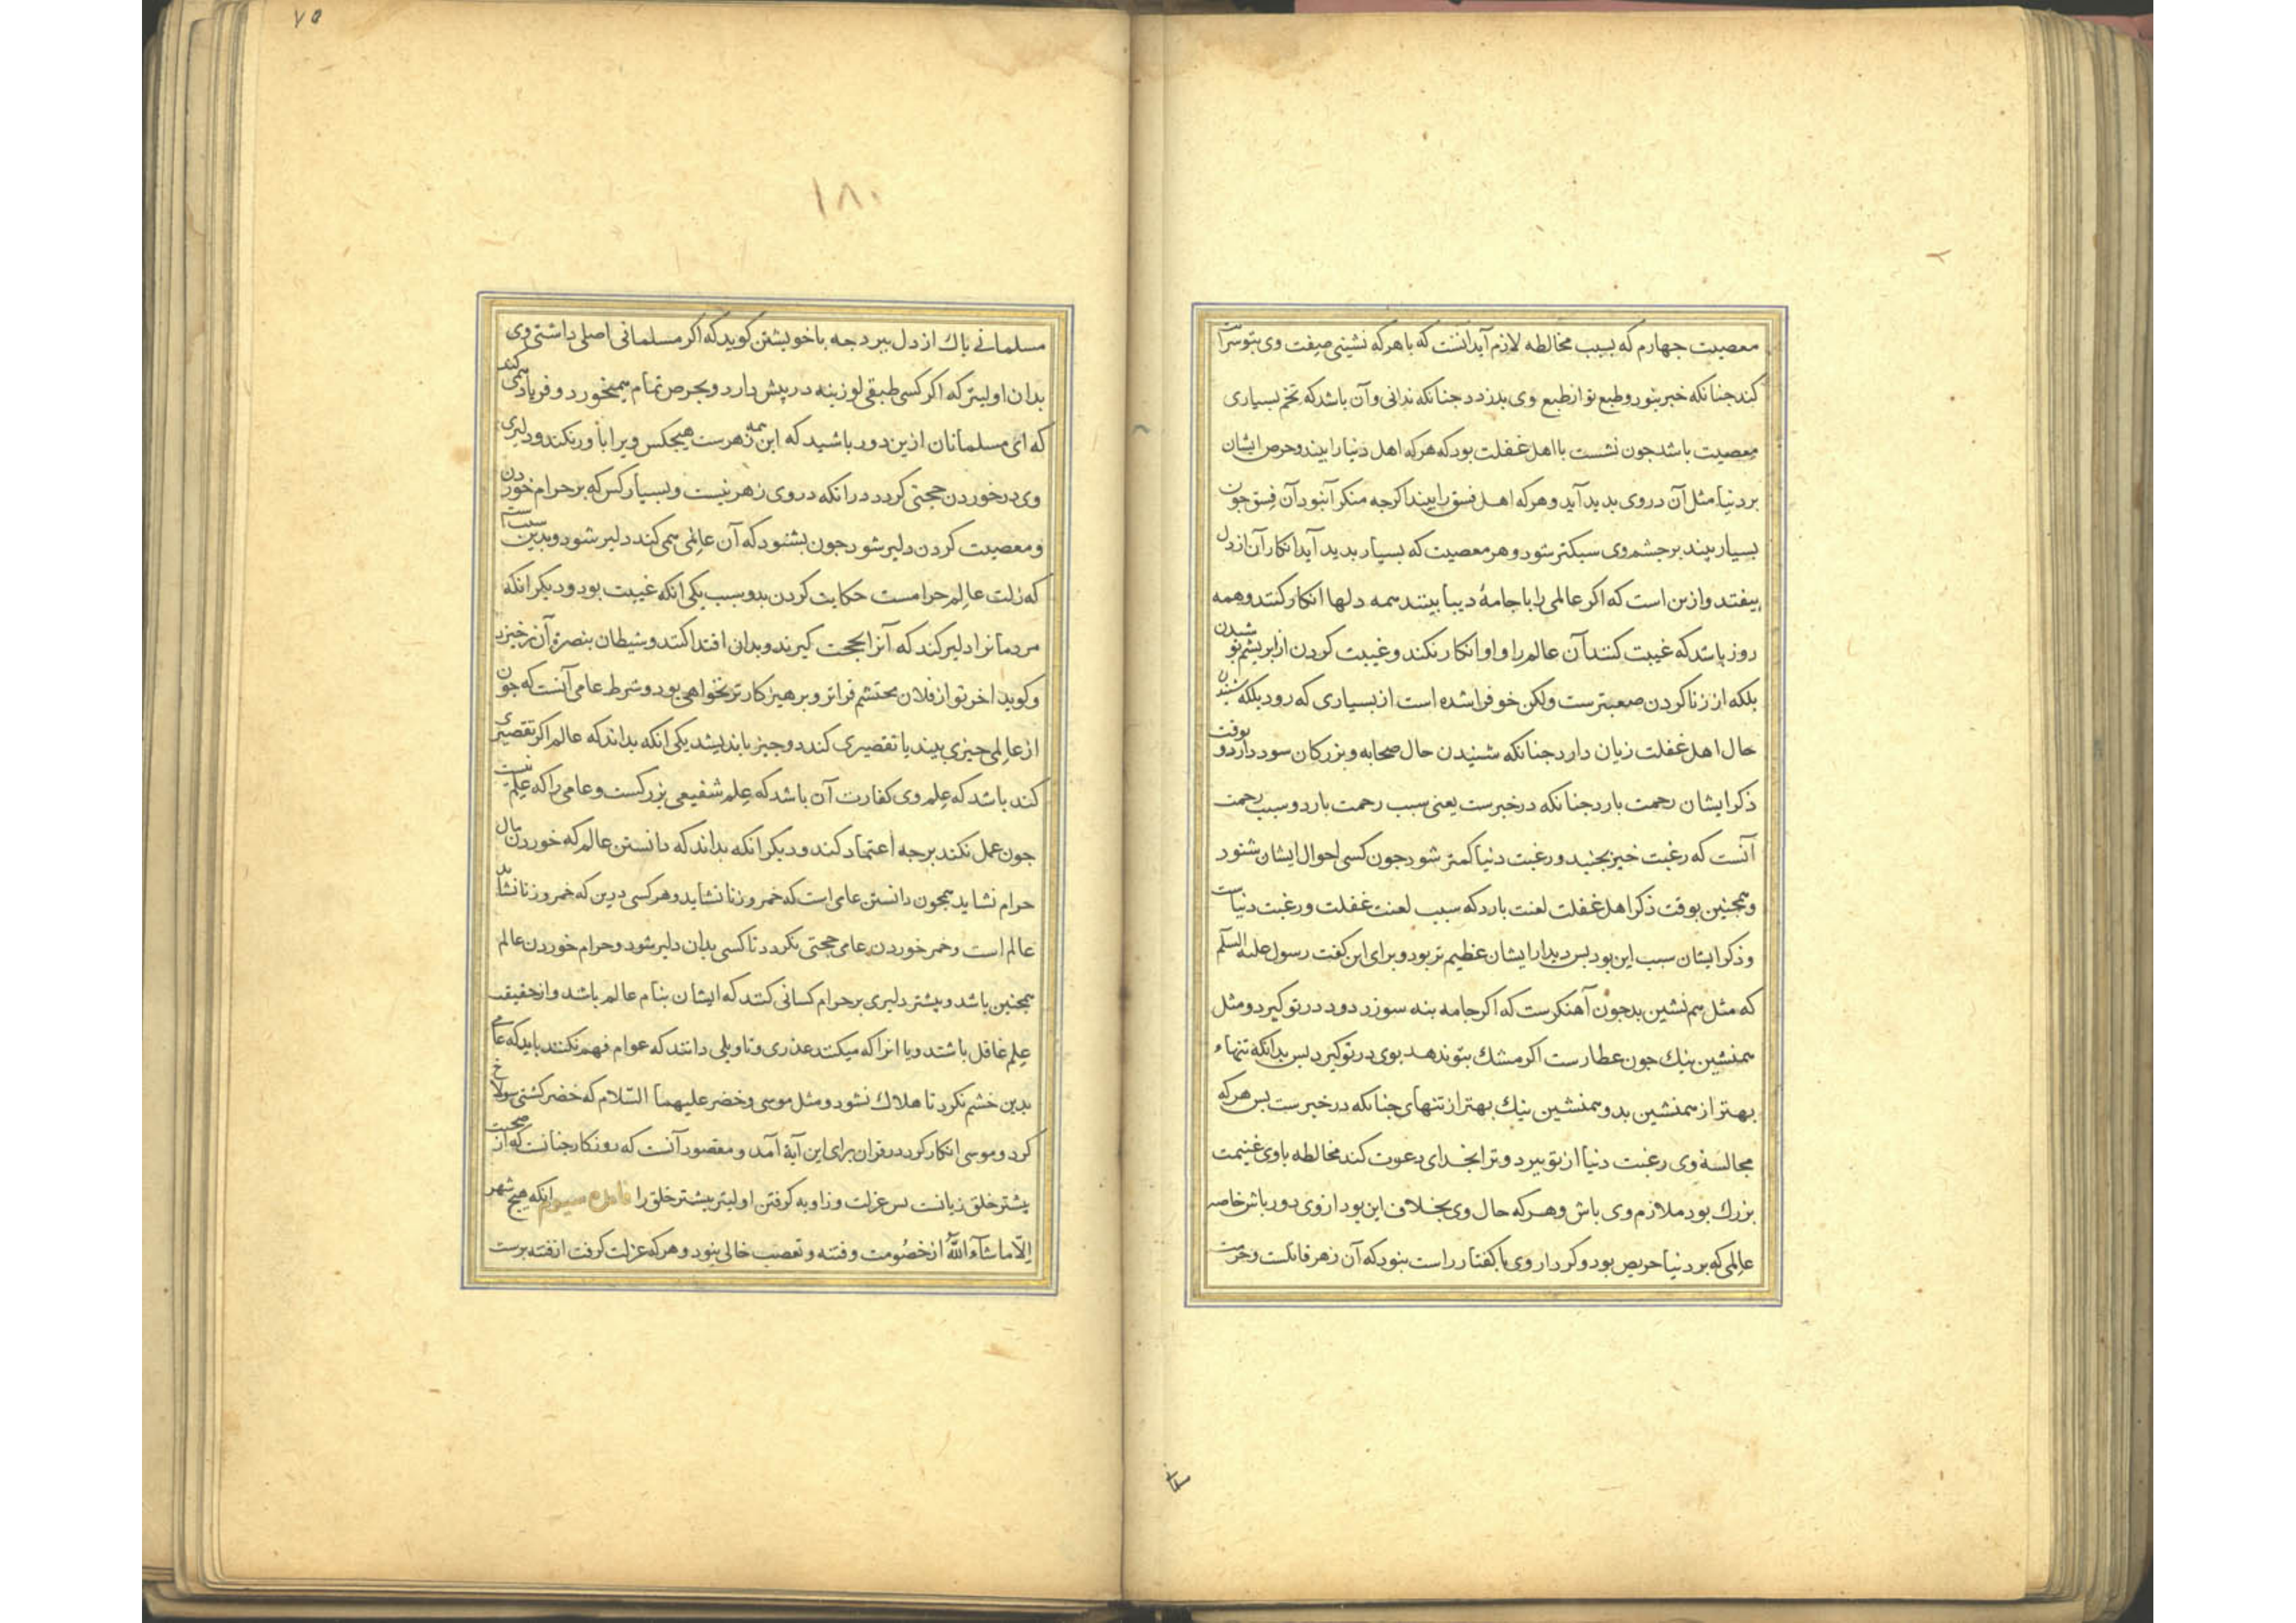 معصیت جهارم که بسبب مخالطه لازم آید انست که با هرکه نشینی صفت وی بتو سرایت
کند جنانکه خبر نبود و طبع تو از طبع وی بدزدد جنانکه ندانی و آن باشد که تخم بسیاری
معصیت باشد جون نشست با اهل غفلت بود که هرکه اهل دنیا را بیند و حرص ایشان
بر دنیا مثل آن در وی بدید آید و هرکه اهل فسق را بیند اکرجه منکر آن بود آن فسق جون
بسیار بیند بر جشم وی سبکتر شود و هر معصیت که بسیار بدید آید انکار آن از دل
بیفتد و ازین است که اکر عالمی را با جامهٔ دیبا بینند همه دلها انکار کنند و همه
روز باشد که غیبت کنند آن عالم را و او انکار نکند و غیبت کردن از ابریشم بو شیدن
بلکه از زنا کردن صعبترست ولکن خو فرا شده است از بسیاری که رود بلکه شنیدن
حال اهل غفلت زیان دارد جنانکه شنیدن حال صحابه و بزرکان سود دارد و بوقت
ذکر ایشان رحمت بارد جنانکه در خبرست یعنی سبب رحمت بارد و سبب رحمت
آنست که رغبت خیز بجنبد و رغبت دنیا کمتر شود جون کسی احوال ایشان شنود
و همجنین بوقت ذکر اهل غفلت لعنت بارد که سبب لعنت غفلت و رغبت دنیاست
و ذکر ایشان سبب این بود بس دیدار ایشان عظیم تر بود و برای این کفت رسول علیه السلم
که مثل هم نشین بد جون آهنکرست که اکر جامه بنه سوزد دود در تو کیرد و مثل
همنشین نیك جون عطارست اکر مشك بتو ندهد بوی در تو کیرد بس بدانکه تنهاء
بهتر از همنشین بد و همنشین نیك بهتر از تنهای جنانکه در خبرست بس هرکه
مجالسة وی رغبت دنیا از تو ببرد و ترا بخدای دعوت کند مخالطه با وی غنیمت
بزرك بود ملازم وی باش و هرکه حال وی بخلاف این بود از وی دور باش خاصه
عالمی که بر دنیا حریص بود و کردار وی با کفتار راست نبود که آن زهر قاتلست و حرمت
۷۵
۱۸۰
مسلمانے باك از دل ببرد جه با خویشتن کوید که اکر مسلمانی اصلی داشتی وی
بدان اولیتر که اکر کسی طبقی لوزینه در پیش دارد و بحرص تمام همیخورد و فریاد همی کند
که ای مسلمانان ازین دور باشید که این همه زهرست هیجکس ویرا باور نکند و دلیری
وی در خوردن حجتی کردد در انکه در وی زهر نیست و بسیار کس که بر حرام خوردن
و معصیت کردن دلیر شود جون بشنود که آن عالمی همی کند دلیر شود و بدین سبب است
که زلت عالم حرامست حکایت کردن بدو سبب یکی انکه غیبت بود و دیکر انکه
مردمانرا دلیر کند که آنرا بحجت کیرند و بدان اقتدا کنند و شیطان بنصرة آن برخیزد
و کوید اخر تو از فلان محتشم فراتر و برهیز کارتر نخواهی بود و شرط عامی آنست که جون
از عالمی جیزی بیند یا تقصیری کند دو جیز باندیشد یکی انکه بداند که عالم اکر تقصیری
کند باشد که علم وی کفارت آن باشد که علم شفیعی بزرکست و عامی را که علم نیست
جون عمل نکند برجه اعتماد کند و دیکر انکه بداند که دانستن عالم که خوردن مال
حرام نشاید همجون دانستن عامی است که خمر و زنا نشاید و هر کسی درین که خمر و زنا نشاید
عالم است و خمر خوردن عامی حجتی نکردد تا کسی بدان دلیر شود و حرام خوردن عالم
همجنین باشد و بیشتر دلیری بر حرام کسانی کنند که ایشان بنام عالم باشد و از حقیقت
علم غافل باشند و یا انرا که میکنند عذری و تاویلی دانند که عوام فهم نکنند باید که عامے
بدین خشم نکرد تا هلاك نشود و مثل موسی و خضر علیهما السّلام که خضر کشتی سولاخ
کرد و موسی انکار کرد در قران برای این آیة آمد و مقصود آنست که روزکار جنانست که از صحبت
بیشتر خلق زیانست بس عزلت و زاویه کرفتن اولیتر بیشتر خلق را فایدهٔ سیوم انکه هیج شهر
اِلّا ما شآءَ اللّٰه از خصُومت و فتنه و تعصب خالی نبود و هرکه عزلت کرفت از فتنه برست